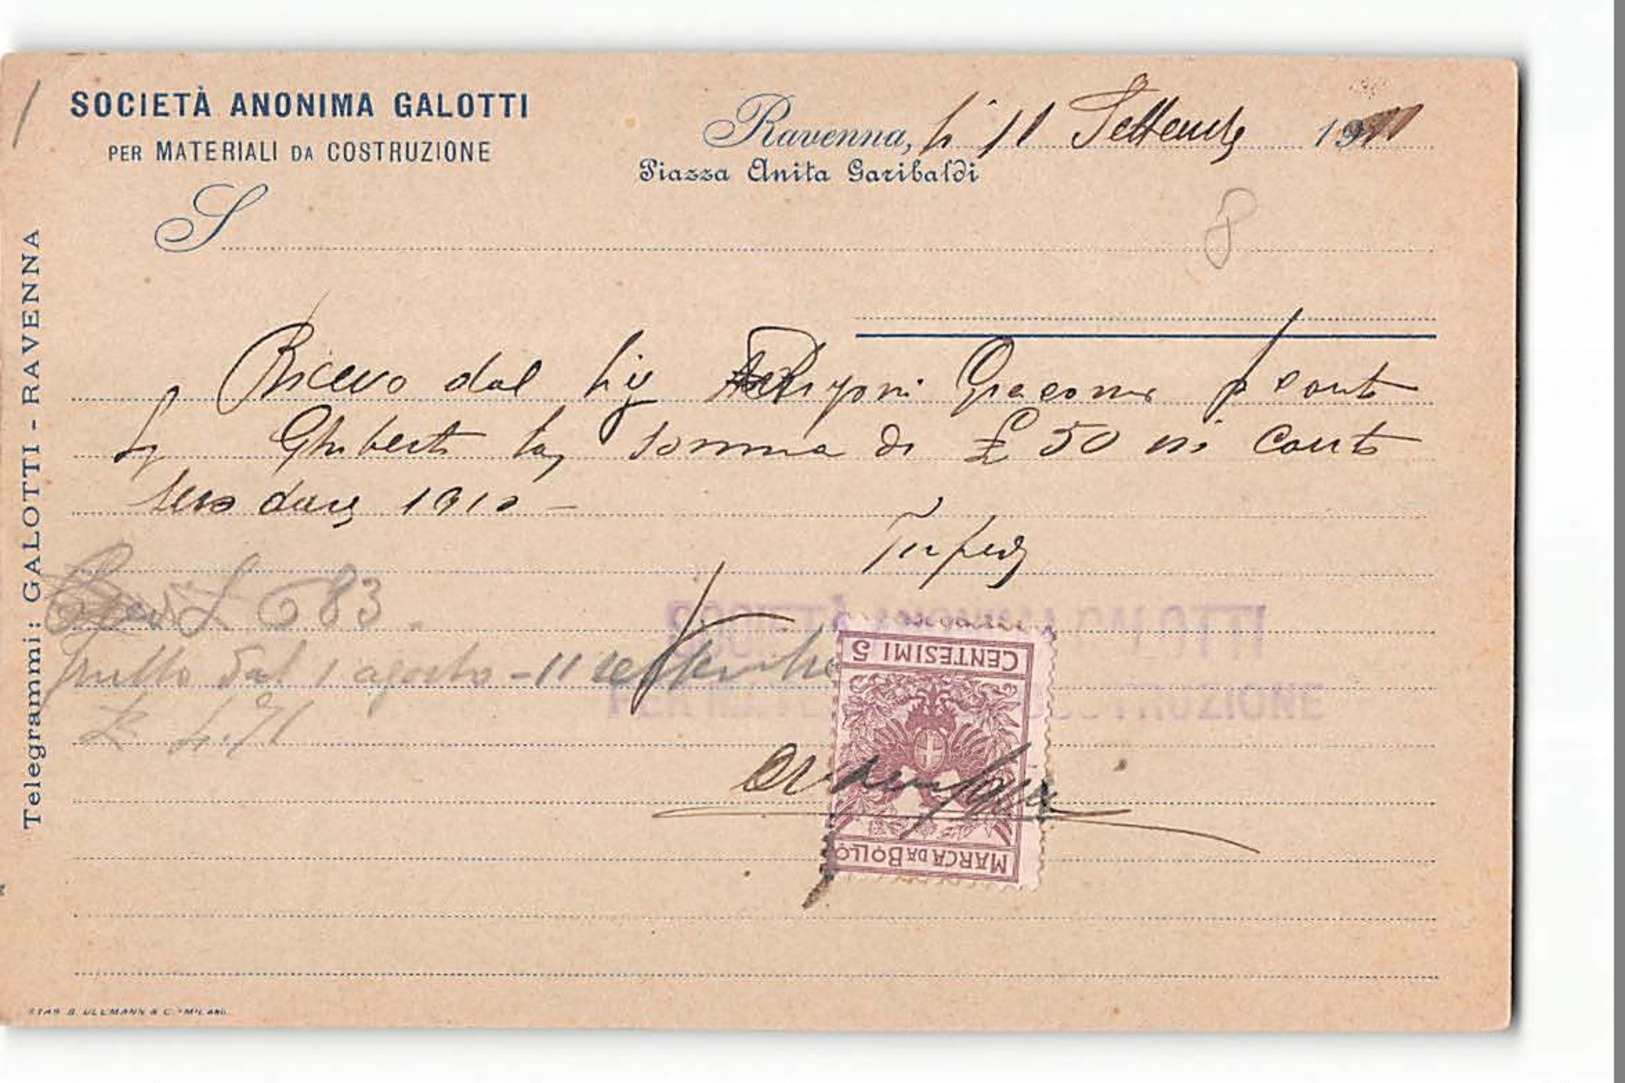 SOCIETÀ ANONIMA GALOTTI
PER MATERIALI DA COSTRUZIONE
Ravenna, li 11 Settembre 1911
Piazza Anita Garibaldi
S
8
Ricevo dal Sig Giacomo p conto
Ghiberti la somma di £ 50 in conto
1910 -
£ 683.
frutto dal 1 agosto - 11 settembre
£ 4.71
SOCIETÀ ANONIMA GALOTTI
PER MATERIALI DA COSTRUZIONE
CENTESIMI 5
MARCA DA BOLLO
Telegrammi: GALOTTI - RAVENNA
STAB. B. ULLMANN & C. - MILANO